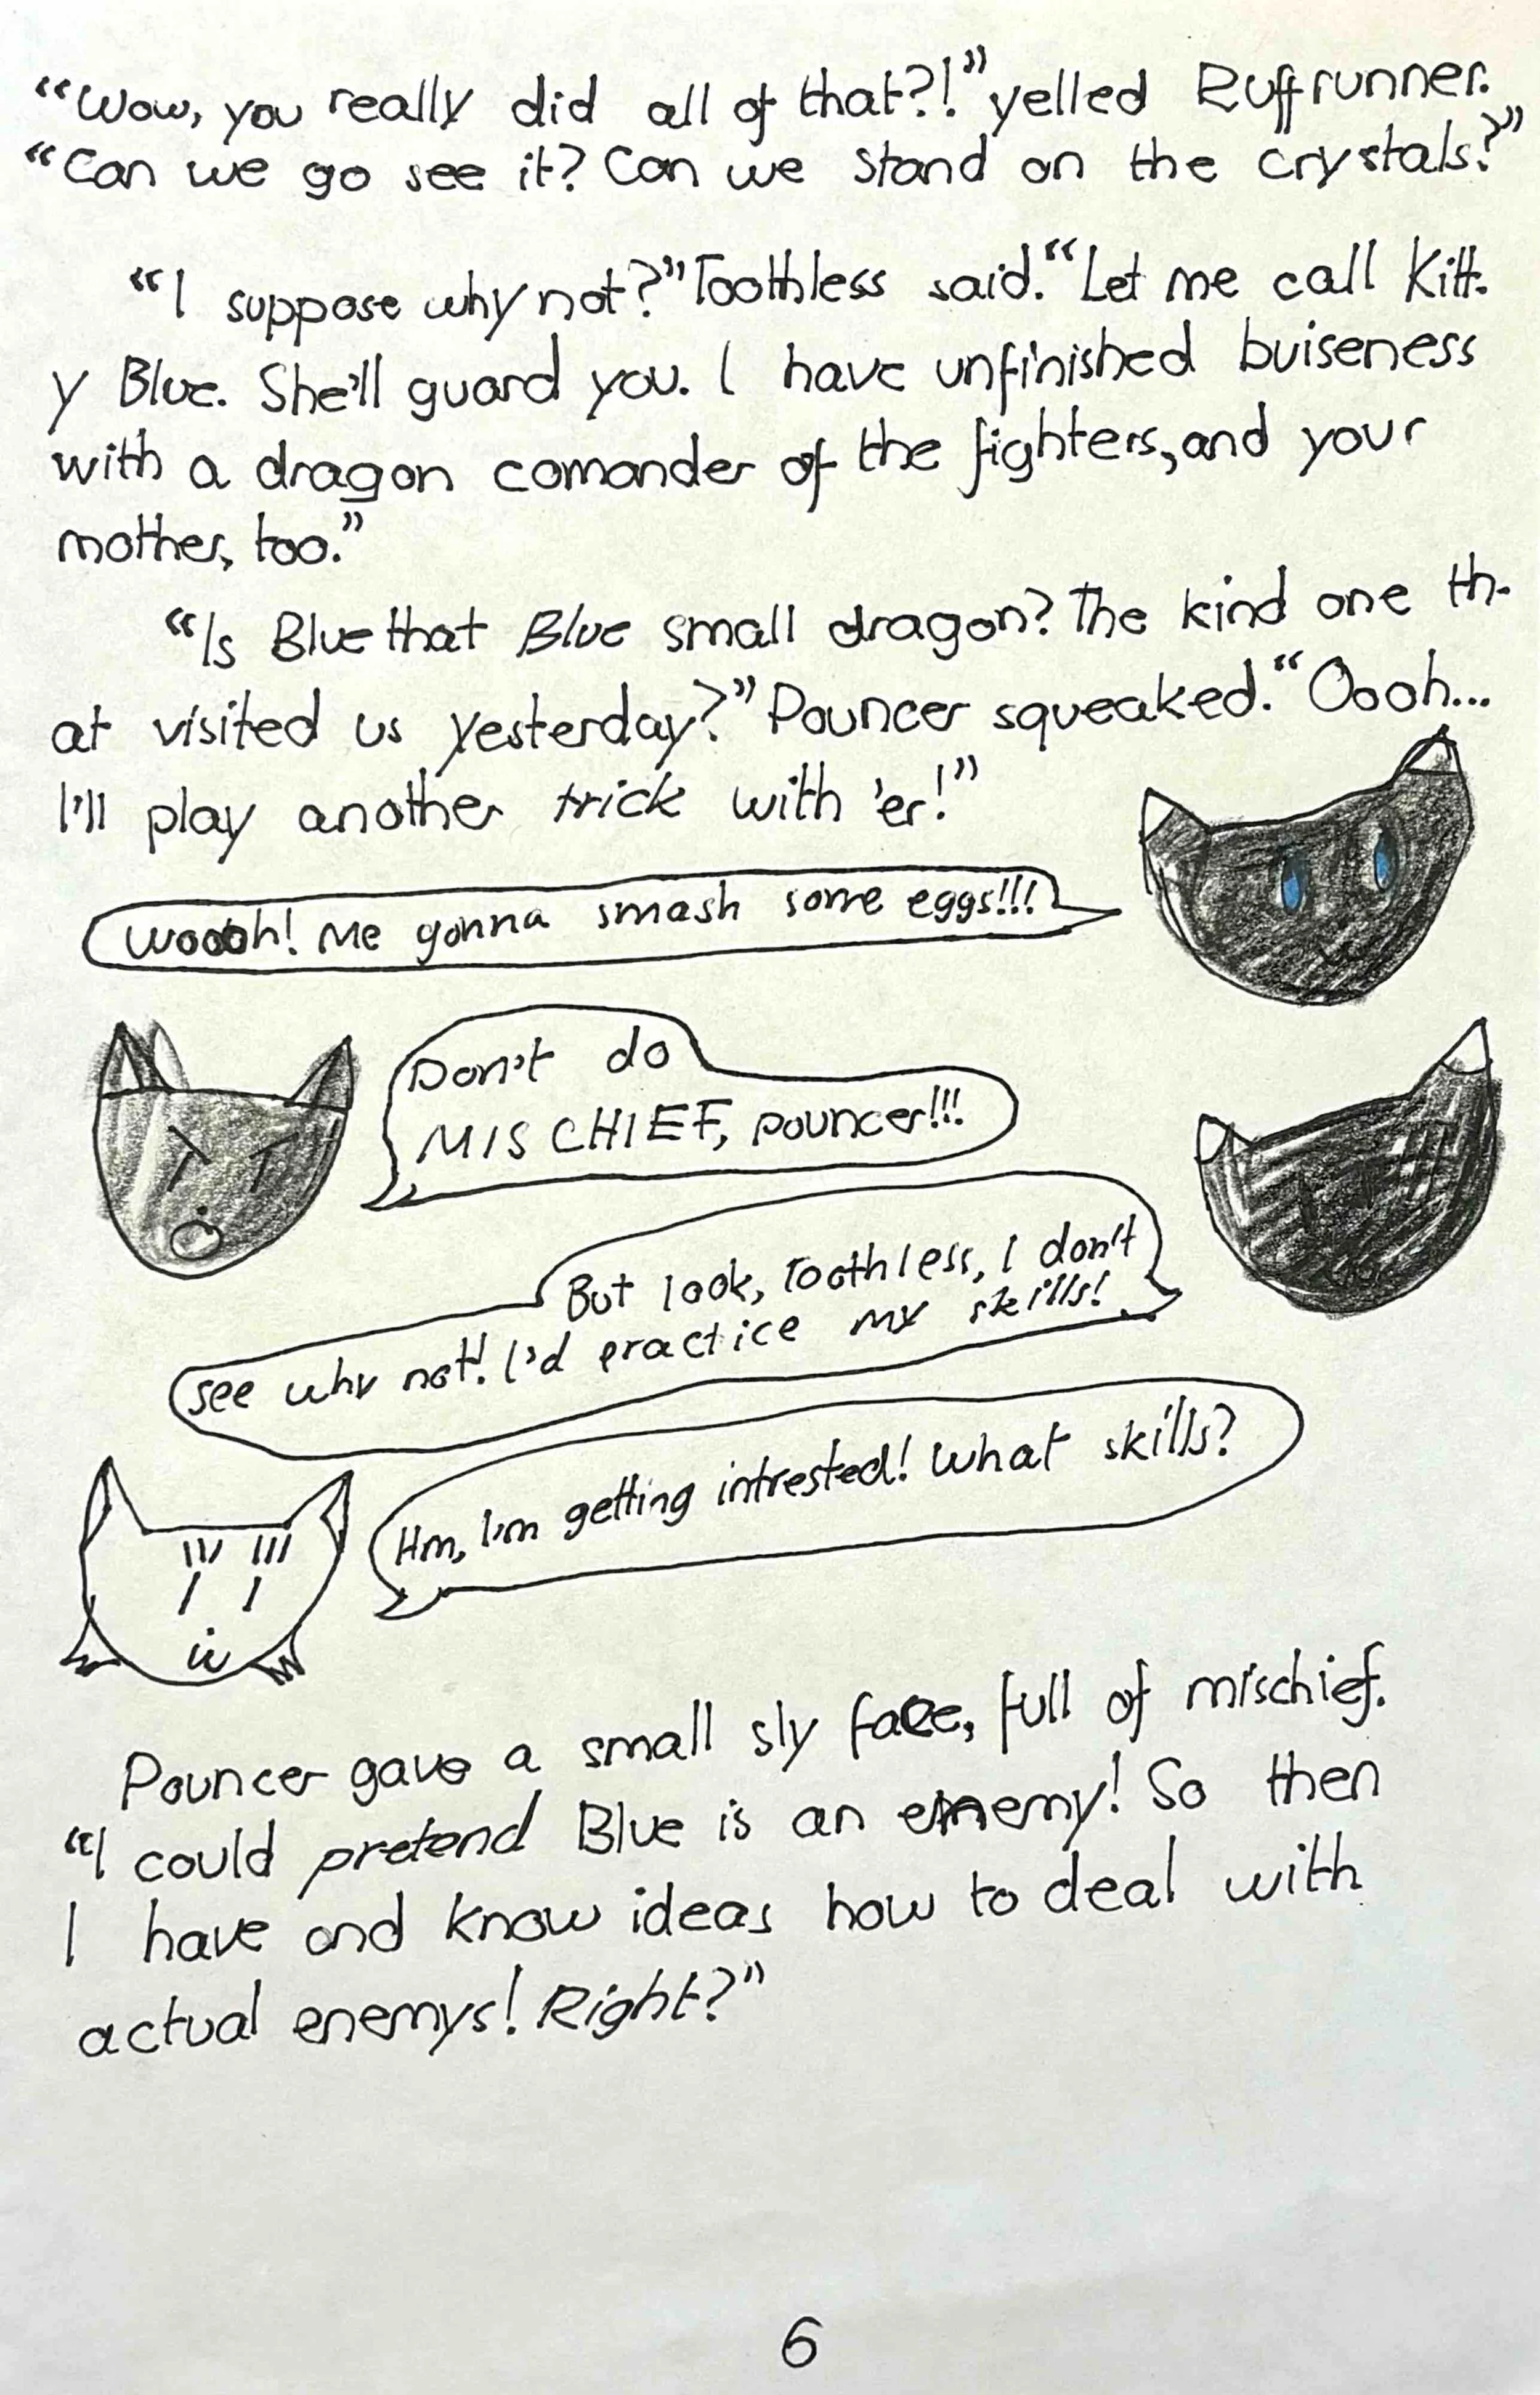 “Wow, you really did all of that?!” yelled Ruffrunner.
“Can we go see it? Can we stand on the crystals?”
“I suppose why not?” Toothless said. “Let me call Kitt-
y Blue. She'll guard you. I have unfinished buiseness
with a dragon comander of the fighters, and your
mother, too.”
“Is Blue that Blue small dragon? The kind one th-
at visited us yesterday?” Pouncer squeaked. “Oooh...
I'll play another trick with 'er!”
Woooh! Me gonna smash some eggs!!!
Don't do
MISCHIEF, pouncer!!!
But look, Toothless, I don't
see why not! I'd practice my skills!
Hm, I'm getting intrested! What skills?
Pouncer gave a small sly face, full of mischief.
“I could pretend Blue is an enemy! So then
I have and know ideas how to deal with
actual enemys! Right?”
6